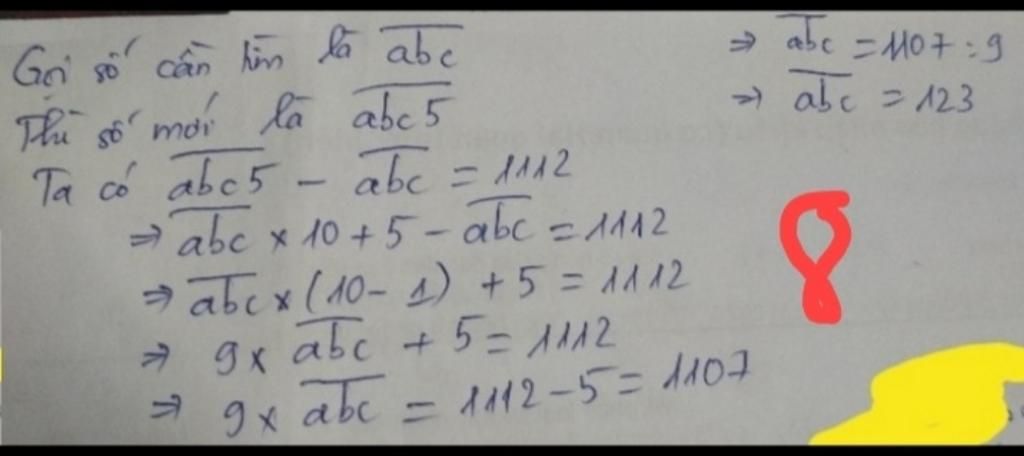 Gọi số cần tìm là abc
Thì số mới là abc5
Ta có abc5 - abc = 1112
⇒ abc × 10 + 5 - abc = 1112
⇒ abc × (10 - 1) + 5 = 1112
⇒ 9 × abc + 5 = 1112
⇒ 9 × abc = 1112 - 5 = 1107
⇒ abc = 1107 : 9
⇒ abc = 123
8